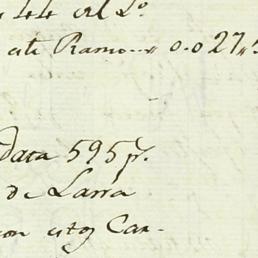 44 al L.º
este Ramo... 0.027,,
data 595 p.s
de Larra
con estos Can-